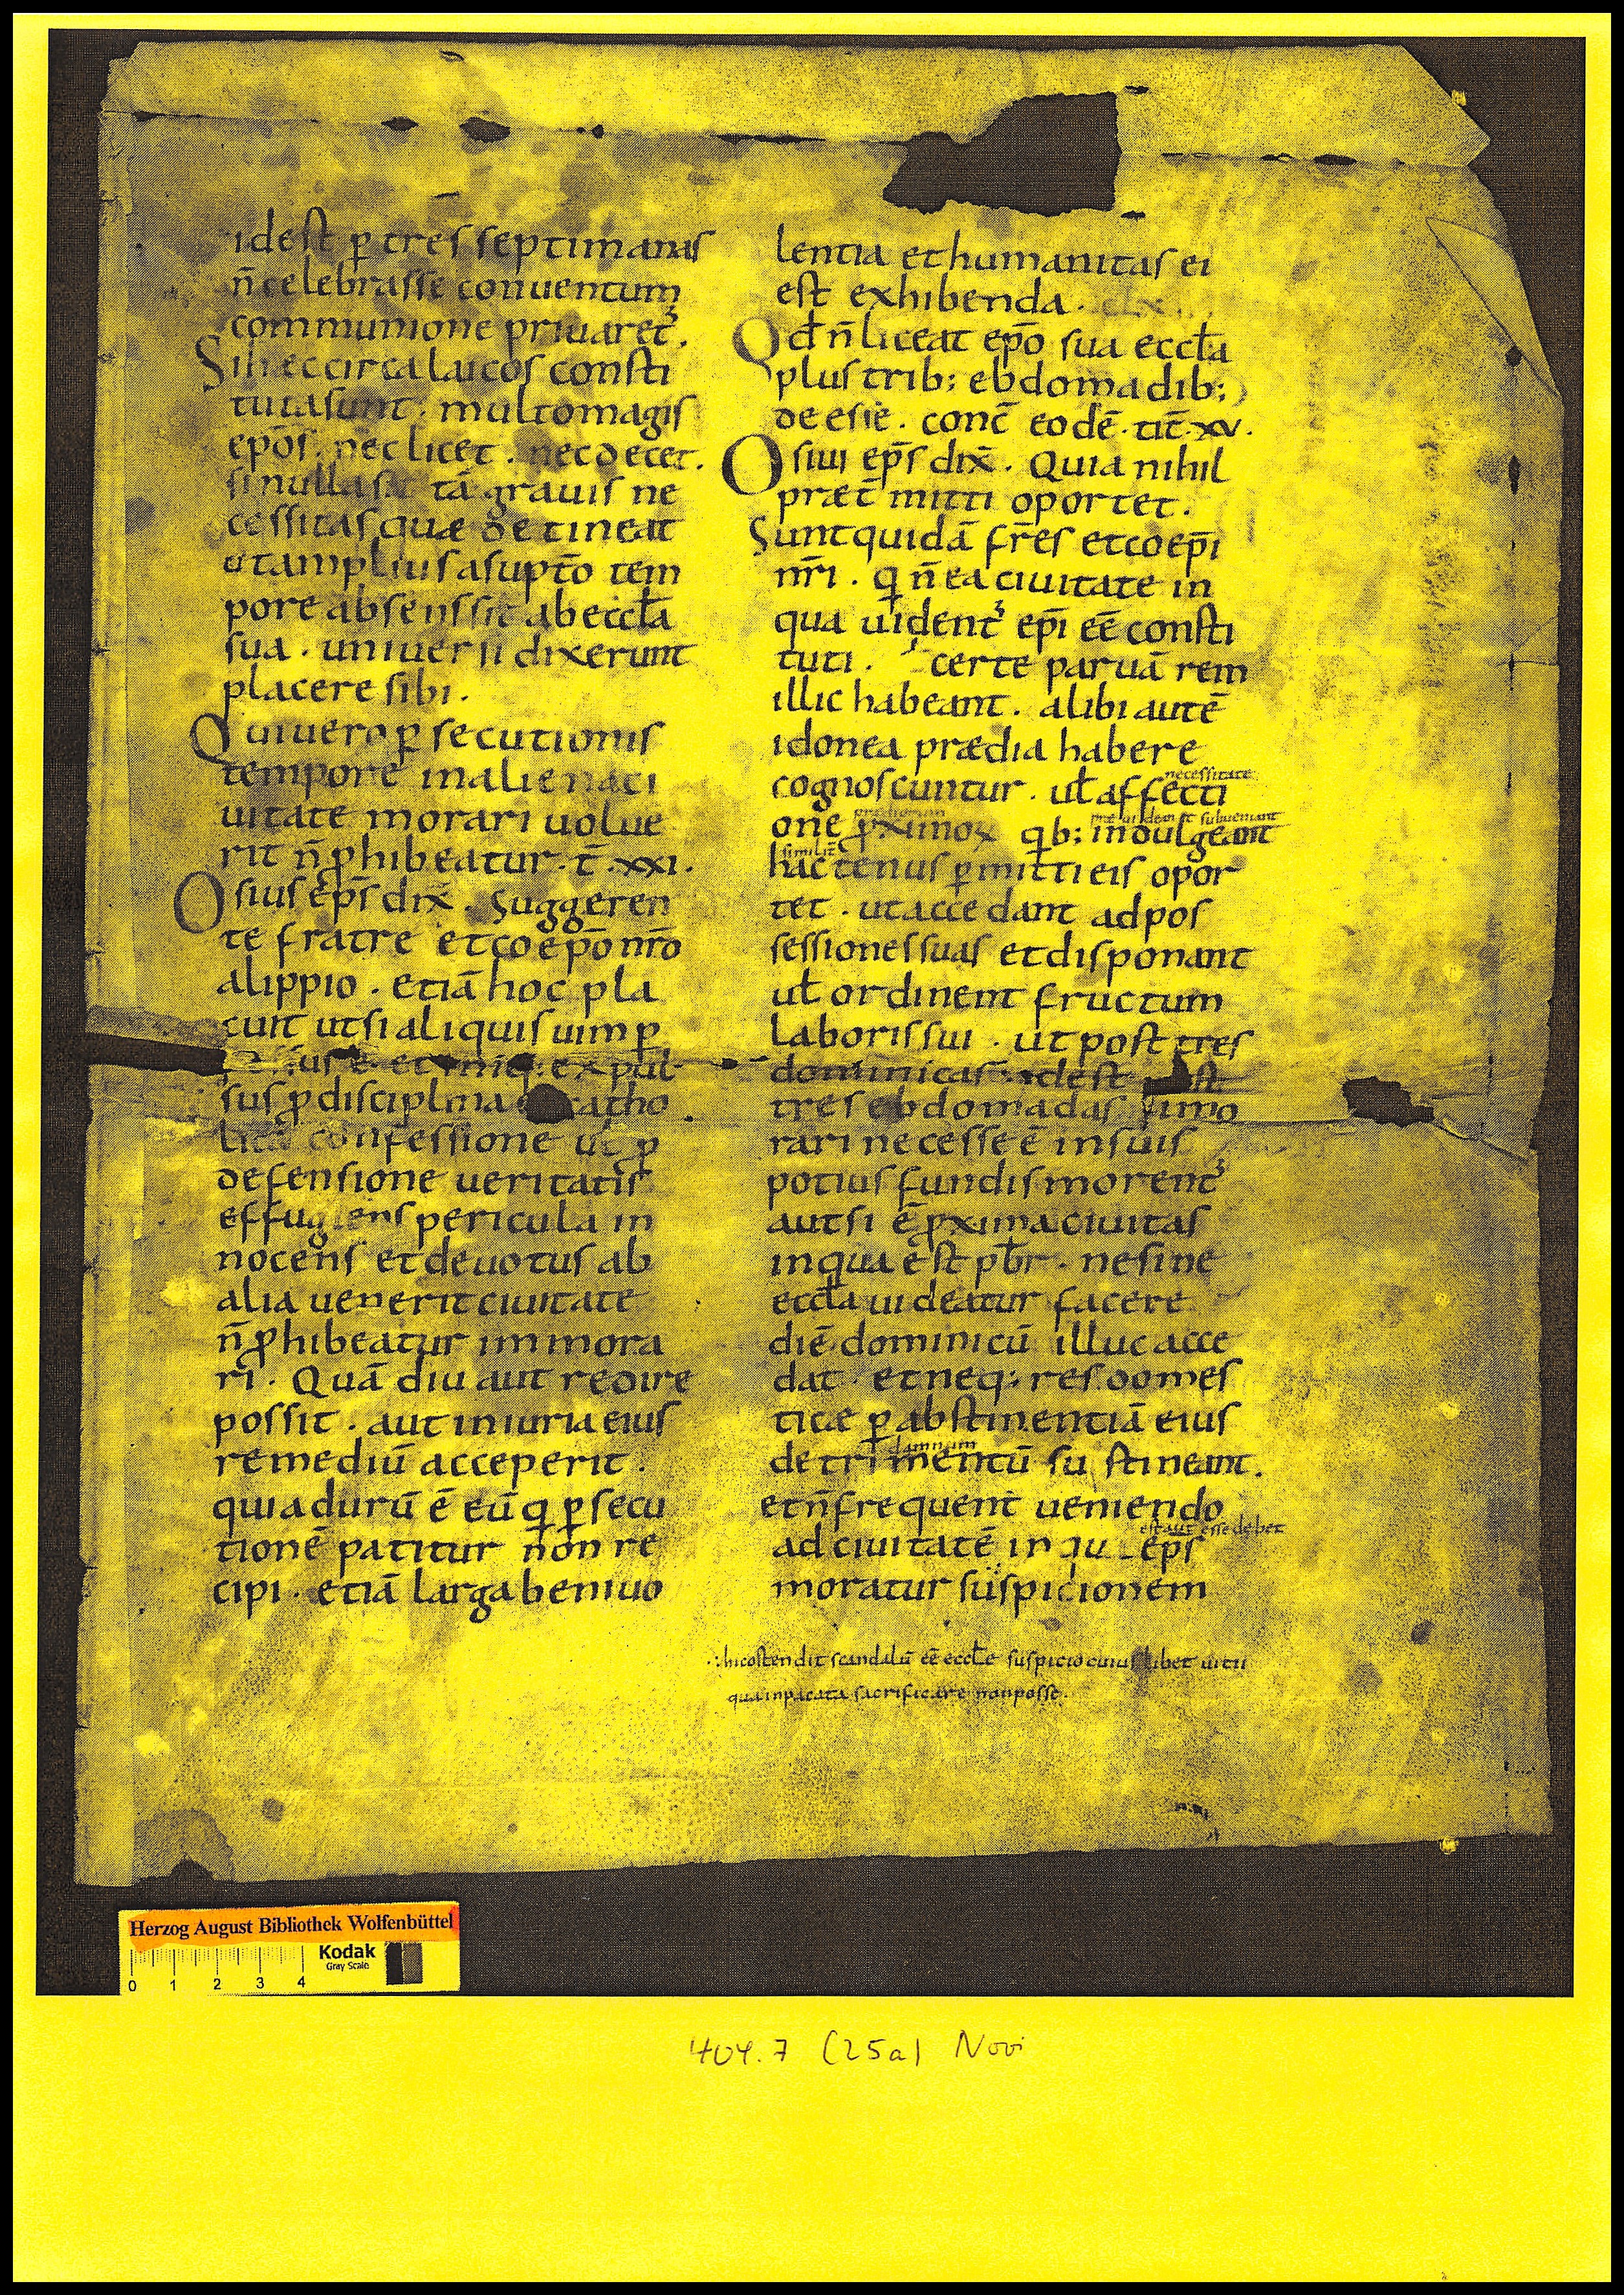 idest p̱ tres septimanas
n̄ celebrasse conuentum
communione priuaret᷒.
Si hæc circa laicos consti
tuta sunt. multo magis
ep̄os. nec licet. nec decet.
si nulla sit tā grauis ne
cessitas quæ detineat
ut amplius a supt̄o tem
pore absens sit ab eccl̄a
sua. uniuersi dixerunt
placere sibi.
Qui uero p̱secutionis
tempore in aliena ci
uitate morari uolue
rit n̄ ꝓhibeatur. t̄. xxi.
Osius ep̄s dix̄. Suggeren
te fratre et coep̄o nr̄o
alippio. etiā hoc pla
cuit ut si aliquis uim p̱
ē et expul
sus ꝓ disciplina catho
lica confessione ul̄ ꝓ
defensione ueritatis
effugiens pericula in
nocens et deuotus ab
alia uenerit ciuitate
n̄ ꝓhibeatur immora
ri. Quā diu aut redire
possit. aut iniuria eius
remediū acceperit.
quia durū ē eū q̱ p̱secu
tionē patitur non re
cipi. etiā larga beniuo
lentia et humanitas ei
est exhibenda.
Qd̄ n̄ liceat ep̄o sua eccl̄a
plus trib; ebdomadib;
deesse. conc̄ eodē. tit̄. xv.
Osiui ep̄s dix̄. Quia nihil
præt̄mitti oportet.
Sunt quidā fr̄es et coep̄i
nr̄i. q̱ n̄ ea ciuitate in
qua uident᷒ ep̄i eē consti
tuti. certe paruā rem
illic habeant. alibi autē
idonea prædia habere
necessitate
cognoscuntur. ul̄ affecti
prædiorum præuideant subueniant
one ꝓximoꝝ q̱b; indulgeant
similit̄
hactenus p̱mitti eis opor
tet. ut accedant ad pos
sessiones suas et disponant
ul̄ ordinent fructum
laboris sui. ut post tres
dominicas idest post
tres ebdomadas si mo
rari necesse ē in suis
potius fundis morent᷒
aut si ē ꝓxima ciuitas
in qua est pb̄r. ne sine
eccl̄a uideatur facere
diē dominicū illuc acce
dat. et neq; res domes
ticæ p̱ abstinentiā eius
damnum
detrimentū sustineant.
et n̄ frequent̄ ueniendo
est aut esse debet
ad ciuitatē in qu ep̄s
moratur suspicionem
hic ostendit scandalū eē eccl̄e suspicio cuiuslibet uitii
qua inpacata sacrificare non posse.
Herzog August Bibliothek Wolfenbüttel
Kodak
Gray Scale
0 1 2 3 4
404.7 (25a) Novi